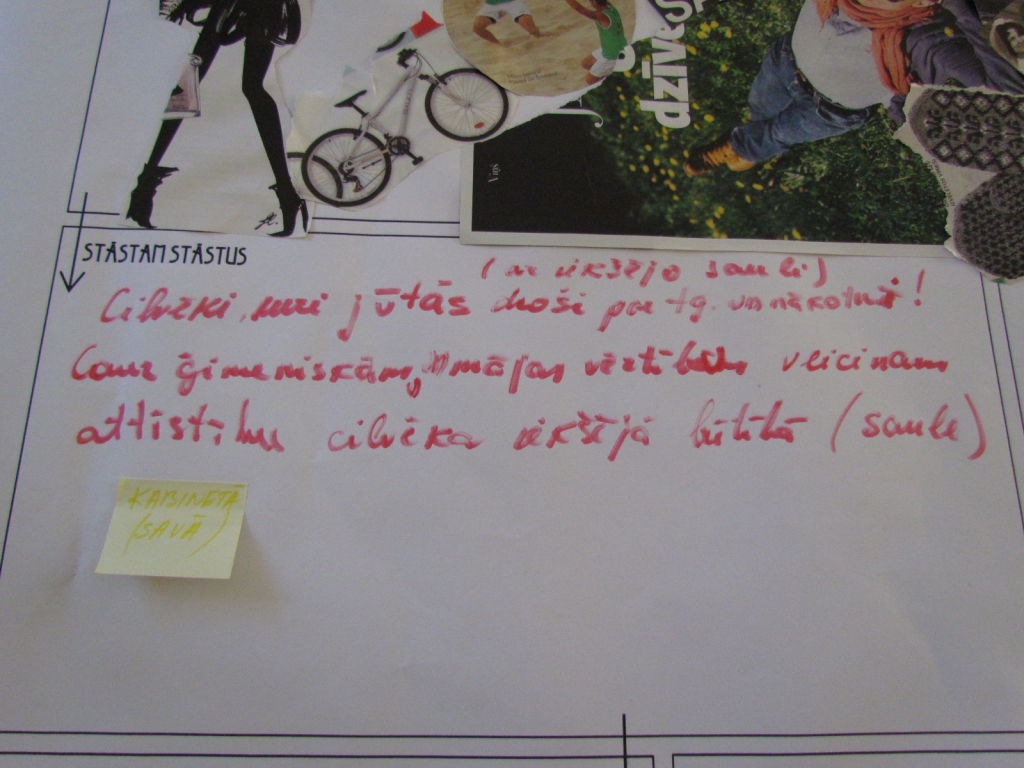 dzīves
Viņš
STĀSTAM STĀSTUS
(ar iekšējo sauli)
Cilvēki, kuri jūtās droši par tg. un nākotni!
Caur ģimeniskām, mājas vērtībām veicinam
attīstību cilvēka iekšējā būtībā (saule)
KABINETĀ
(SAVĀ)